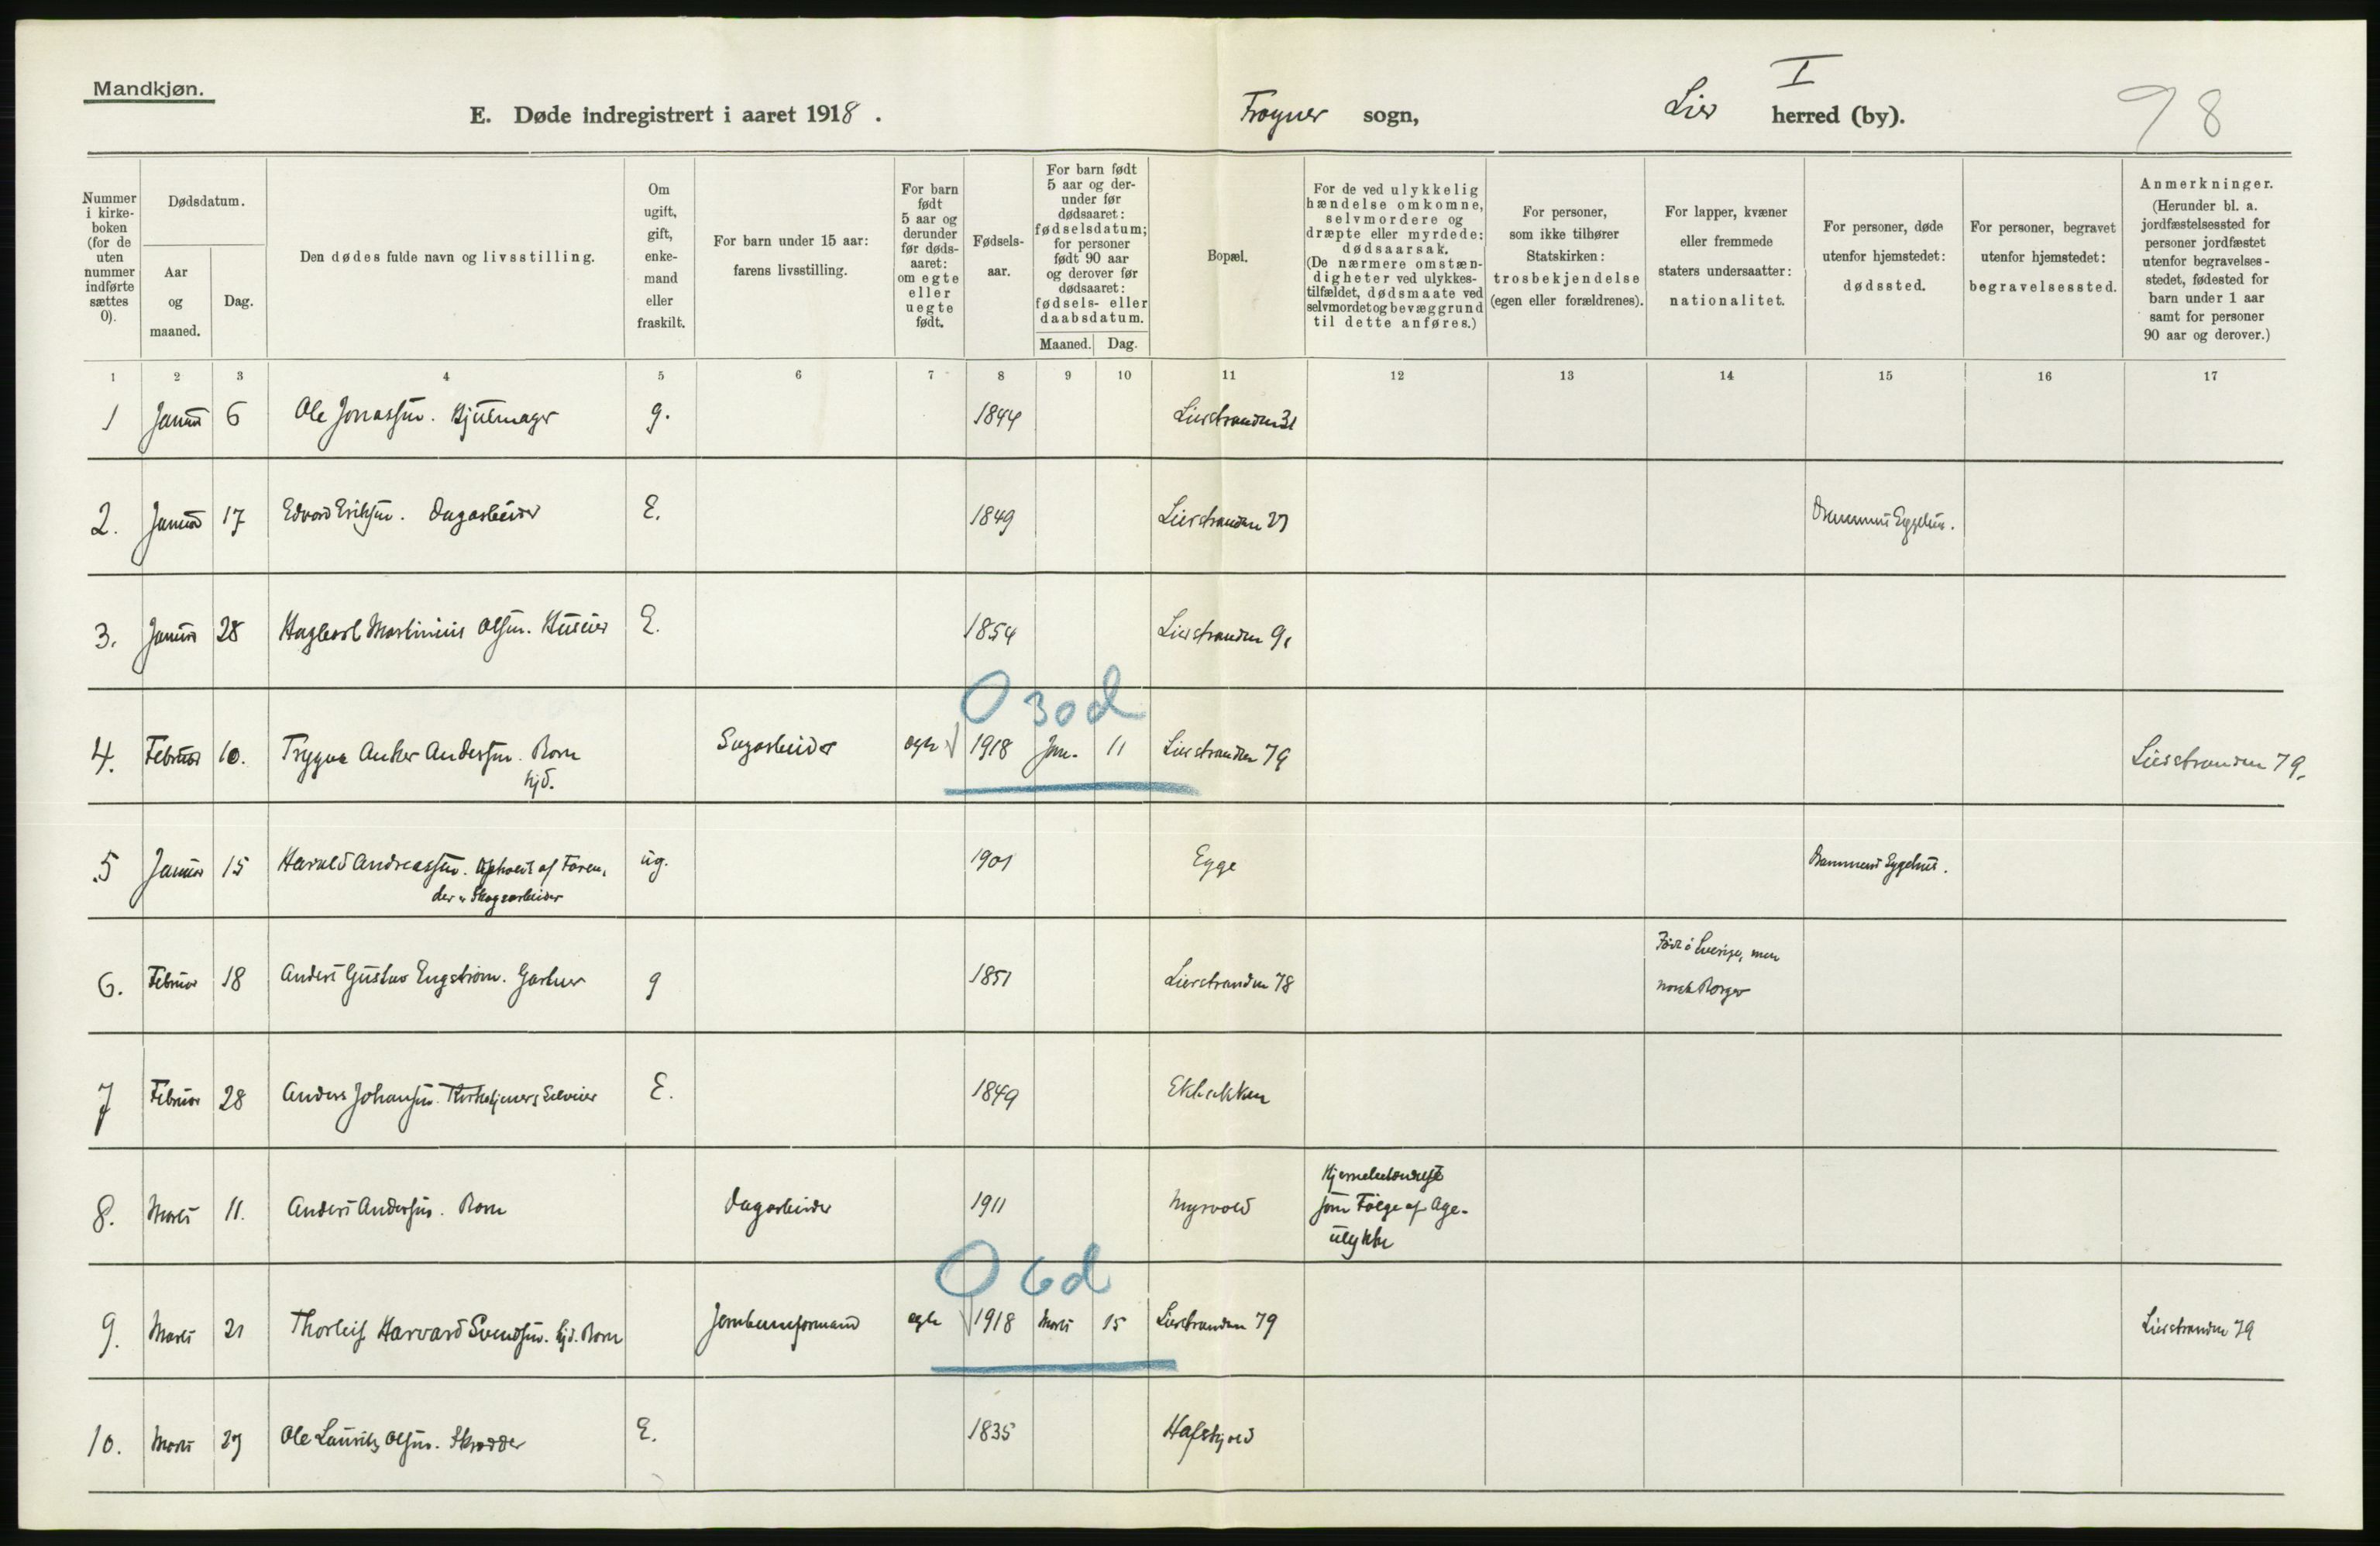 Mandkjøn.
E. Døde indregistrert i aaret 1918. Frogner sogn, Lier I herred (by). 98
Nummer i kirke-boken (for de uten nummer indførte sættes 0).
Dødsdatum.
Aar og maaned.
Dag.
Den dødes fulde navn og livsstilling.
Om ugift, gift, enke-mand eller fraskilt.
For barn under 15 aar: farens livsstilling.
For barn født 5 aar og derunder før døds-aaret: om egte eller uegte født.
Fødsels-aar.
For barn født 5 aar og der-under før dødsaaret: fødselsdatum; for personer født 90 aar og derover før dødsaaret: fødsels- eller daabsdatum.
Maaned. Dag.
Bopæl.
For de ved ulykkelig hændelse omkomne, selvmordere og dræpte eller myrdede: dødsaarsak. (De nærmere omstæn-digheter ved ulykkes-tilfældet, dødsmaate ved selvmordet og bevæggrund til dette anføres.)
For personer, som ikke tilhører Statskirken: trosbekjendelse (egen eller forældrenes).
For lapper, kvæner eller fremmede staters undersaatter: nationalitet.
For personer, døde utenfor hjemstedet: dødssted.
For personer, begravet utenfor hjemstedet: begravelsessted.
Anmerkninger. (Herunder bl. a. jordfæstelsessted for personer jordfæstet utenfor begravelses-stedet, fødested for barn under 1 aar samt for personer 90 aar og derover.)
1 2 3 4 5 6 7 8 9 10 11 12 13 14 15 16 17
1 Januar 6 Ole Jonassen. Hjulmager g. 1844 Lierstranden 31
2. Januar 17 Edvard Eriksen. Dagarbeider E. 1849 Lierstranden 27 Drammens Sygehus.
3. Januar 28 Hagbart Martinius Olsen. Huseier E. 1854 Lierstranden 91
O 30 d
4. Februar 10. Trygve Anker Andersen. Barn Sagarbeider egte 1918 Jan. 11 Lierstranden 79 Lierstranden 79.
hjd.
5 Januar 15 Harald Andreassen. Opholdt af Faren, ug. 1901 Egge Drammens Sygehus.
der er Skogsarbeider
6. Februar 18 Anders Gustav Engstrøm. Gartner g 1851 Lierstranden 78 Født i Sverige, men
norsk Borger
7 Februar 28 Anders Johansen. Selveier E. 1849 Ekbakken
8. Marts 11. Anders Andersen. Barn Dagarbeider 1911 Myrvold Hjernebetændelse
som Følge af Age-
ulykke
O 6 d
9. Marts 21 Thorleif Harvard Svendsen. hjd. Barn Jernbaneformand egte 1918 Marts 15 Lierstranden 79 Lierstranden 79
10. Marts 27 Ole Lauritz Olsen. Skrædder E. 1835